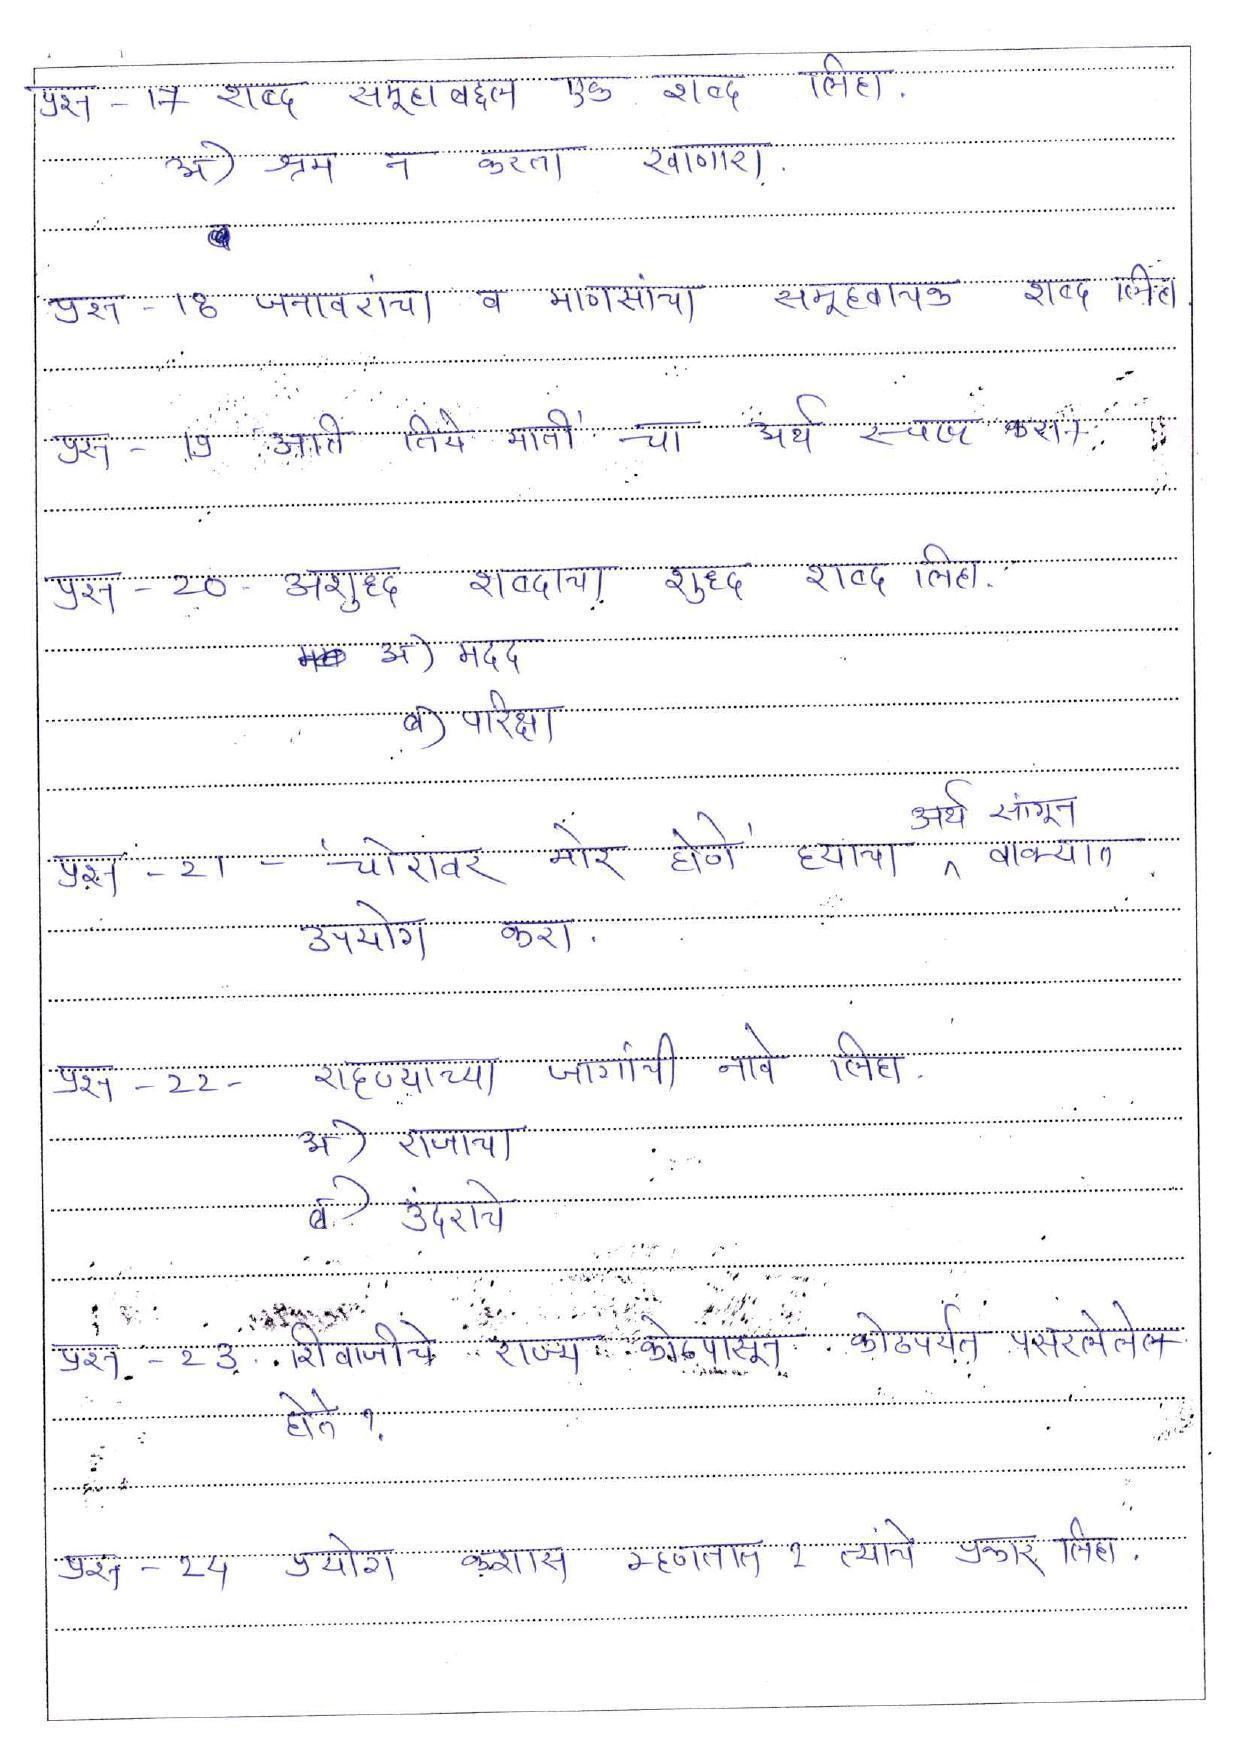 प्रश्न - 17 शब्द समूहाबद्दल एक शब्द लिहा.
अ) श्रम न करता खाणारा.
प्रश्न - 18 जनावरांचा व माणसांचा समूहवाचक शब्द लिहा.
प्रश्न - 19 आती तिये माती' चा अर्थ स्पष्ट करा.
प्रश्न - 20 - अशुध्द शब्दाचा शुध्द शब्द लिहा.
अ) मदद
ब) परिक्षा
अर्थ सांगून
प्रश्न - 21 - 'चोरावर मोर होणे' ह्याचा ^ वाक्यात
उपयोग करा.
प्रश्न - 22 - राहण्याच्या जागांची नावे लिहा.
अ) राजाचा
ब) उंदराचे
प्रश्न - 23 . शिवाजीचे राज्य कोठपासून कोठपर्यंत पसरलेलेल
होते ?
प्रश्न - 24 प्रयोग कशास म्हणतात ? त्यांचे प्रकार लिहा.